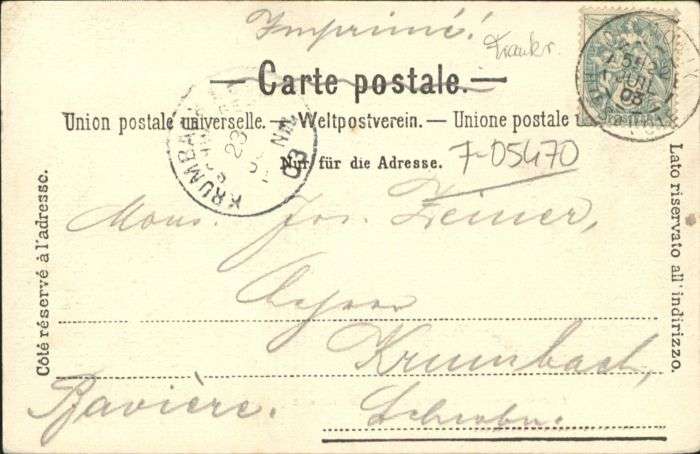 Imprimé!
Frankr.
— Carte postale. —
Union postale universelle. — Weltpostverein. — Unione postale
Nur für die Adresse.
7-05470
KRUMBACH
23
03
03
Côté réservé à l'adresse.
Lato riservato all' indirizzo.
Mons. Jos. Zeiner,
Krumbach,
Bavière. Schwbn.